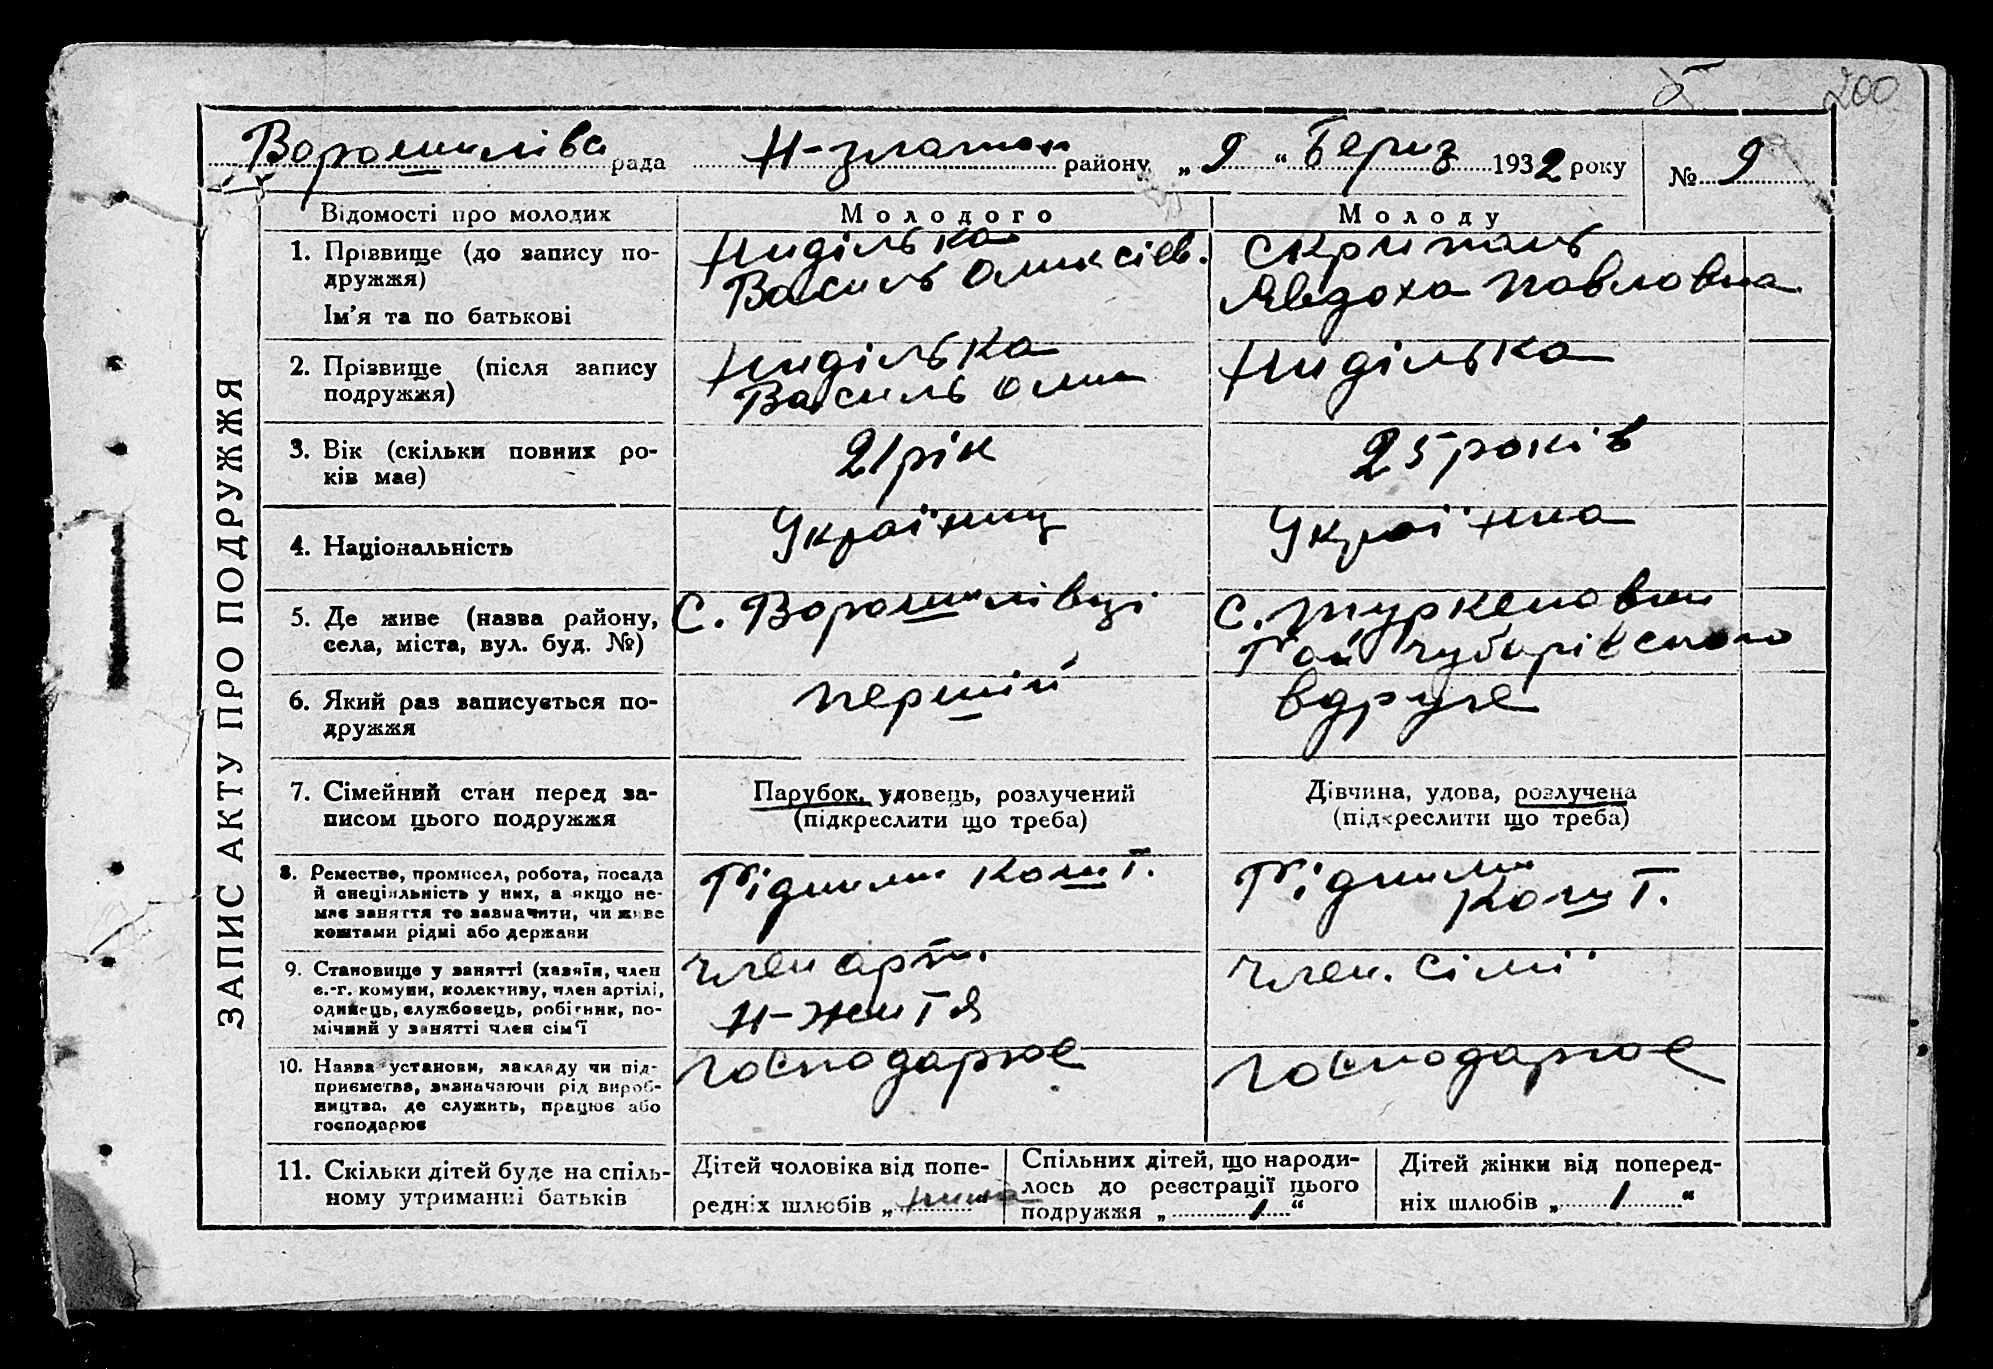 б 200
Ворошилівс рада Н-златоп району „ 9 “ Берез 1932 року № 9
ЗАПИС АКТУ ПРО ПОДРУЖЖЯ
Відомості про молодих Молодого Молоду
1. Прізвище (до запису по-
дружжя)
Ім'я та по батькові
Ниділька
Василь Оликсіев.
Скрипаль
Явдоха Павловна
2. Прізвище (після запису
подружжя)
Ниділька
Василь Оли
Ниділька
3. Вік (скільки повних ро-
ків має)
21 рік
25 років
4. Національність
Україниц
Украіінка
5. Де живе (назва району,
села, міста, вул. буд. №)
С. Ворошилівці
С. Туркеновки
Рай Чубарівського
6. Який раз записується по-
дружжя
перший
вдруге
7. Сімейний стан перед за-
писом цього подружжя
Парубок, удовець, розлучений
(підкреслити що треба)
Дівчина, удова, розлучена
(підкреслити що треба)
8. Ремество, промисел, робота, посада
й спеціяльність у них, а якщо не-
має заняття то зазначити, чи живе
коштами рідні або держави
Рідними кошт.
Рідними
кошт.
9. Становище у занятті (хазяїн, член
с.-г. комуни, колективу, член артілі,
одинець, службовець, робітник, по-
мічний у занятті член сім'ї
член арт.
Н-Життя
член. сіміі
10. Назва установи, закладу чи під-
приємства, визначаючи рід вироб-
ництва, де служить, працює або
господарює
господарює
господарює
11. Скільки дітей буде на спіль-
ному утриманні батьків
Дітей чоловіка від попе-
редніх шлюбів „ нима “
Спільних дітей, що народи-
лось до реєстрації цього
подружжя „ 1 “
Дітей жінки від поперед-
ніх шлюбів „ 1 “